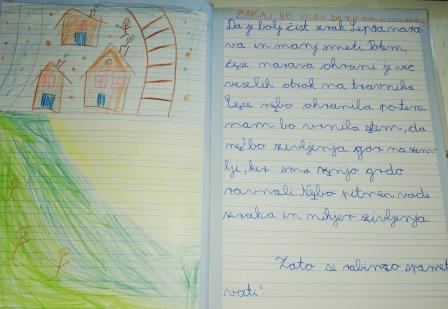 ZAKAJ JE PRAV DA
Da je bolj čist zrak. Lepša nara-
va in manj smeti. Potem,
čepe narava ohrani je več
veselih otrok na travniku.
Čepe nebo ohranila potem
nam bo vrnila s tem, da
ne bo življenja gor na zem-
lji, ker smo z njo grdo
ravnali. Ne bo pitne vode
zraka in nikjer življenja.
Zato se
vati!